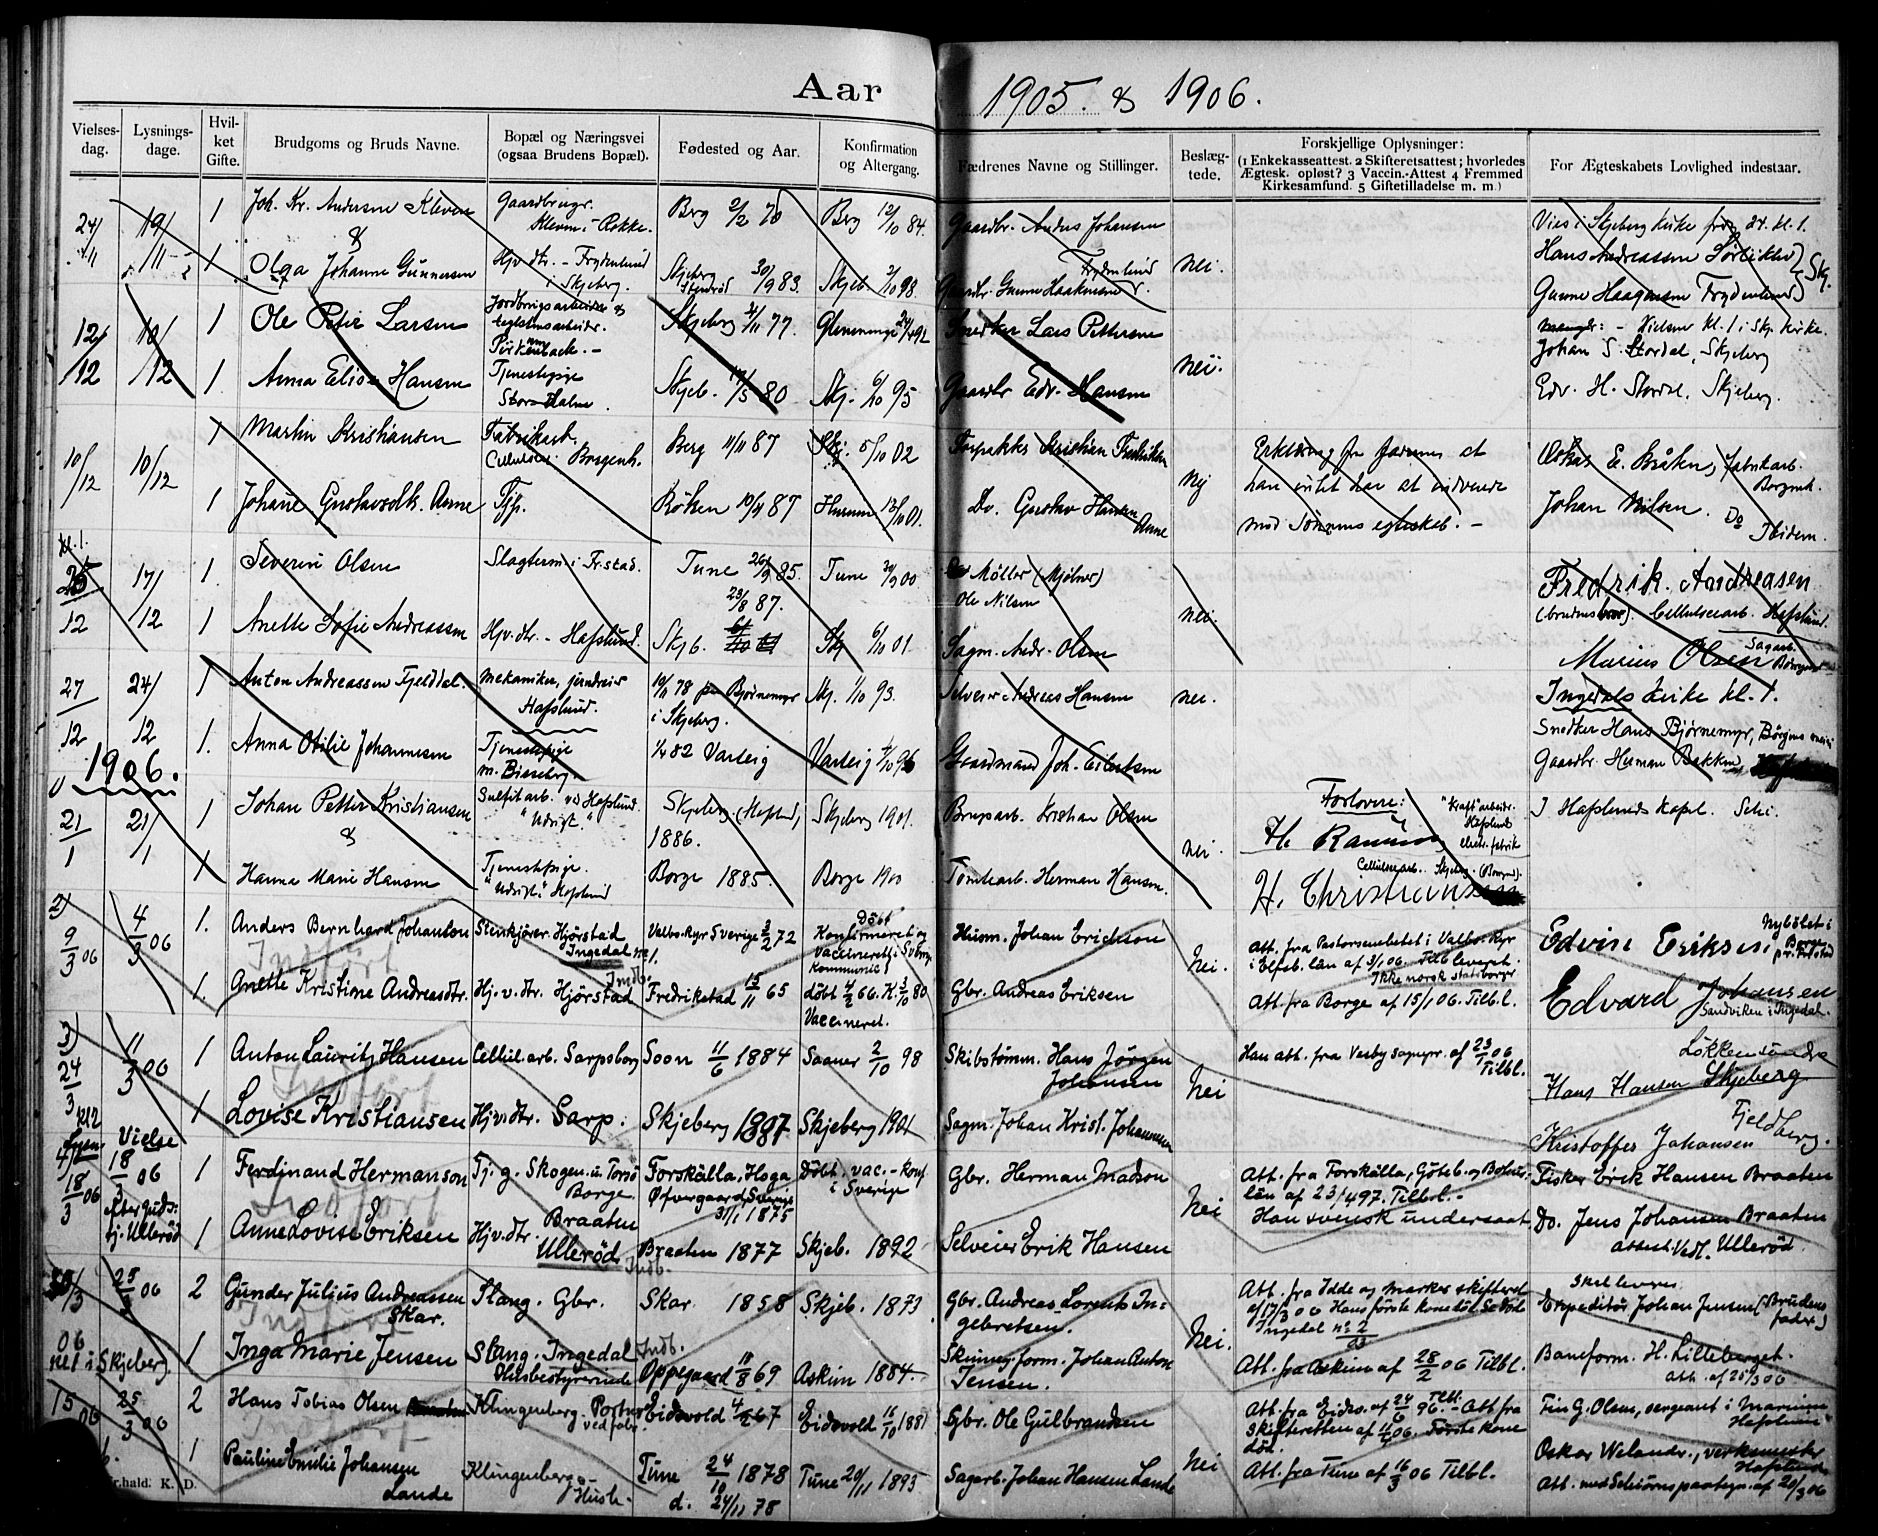 Aar 1905. & 1906.
Vielses-dag.
Lysnings-dage.
Hvil-ket Gifte.
Brudgoms og Bruds Navne.
Bopæl og Næringsvei (ogsaa Brudens Bopæl).
Fødested og Aar.
Konfirmation og Altergang.
Fædrenes Navne og Stillinger.
Beslæg-tede.
Forskjellige Oplysninger:
(1 Enkekasseattest. 2 Skifteretsattest; hvorledes
Ægtesk. opløst? 3 Vaccin.-Attest 4 Fremmed
Kirkesamfund. 5 Giftetilladelse m. m.)
For Ægteskabets Lovlighed indestaar.
24/11 19/11 1 Joh. Kr. Andersen Kleven Gaardbrugr. Kleven i Rokke. Berg 2/2 70 Berg 12/10 84. Gaardbr. Anders Johansen
&
1 Olga Johanne Gunnersen Hjv. dtr. - Frydenlund i Skjeberg. Skjeberg 30/9 83. Skjeb. 2/10 98. Gaardbr. Gunner Haakensen Frydenlund nei.
Vies i Skjeberg kirke 24. kl. 1.
Hans Andreassen Sorlikker
Gunner Haagensen Frydenlund } Skj.
12/12 10/12 1 Ole Peter Larsen Skjeberg 77. Glemminge Snedker Lars Pettersen
1 Anna Elise Hansen Tjenestepige Skjeb. 17/5 80 Skj. 6/10 95 Gaardbr Edv. Hansen nei.
Johan S. Stordal, Skjeberg
Edv. H. Stordal, Skjeberg.
10/12 10/12 1 Martin Kristiansen Fabrikarb. Cellulose. Borgenh. Berg 11/11 87 Skj. 5/10 02 Forpakter Kristian Fredriksen
1 Johane Gustavsdtr. Aarne Tjp. Røken 10/4 87 Hurum 13/10 01. Do. Gustav Hansen Aarne nej
Erklæring fra faderen at
han intet har at indvende
mod sønnens egteskab. -
Oskar E. Bråten, fabrikarb. Borgenh.
Johan Nilsen. Do Ibidem.
kl. 1.
25/12 17/12 1. Severin Olsen Slagterm. i Fr.stad. Tune 26/9 85. Tune 30/9 00 Møller (Mjølner) Ole Nilsen
23/8 87.
1 Anette Sofie Andreassen Hjv. dtr. - Hafslund. Skjb. Skj 6/10 01. Sagm. Andr. Olsen nei.
Fredrik. Andreasen
(brudens bror). Cellulosearb. Hafslund.
Marius Olsen Sagarb.
27/12 24/12 1 Anton Andreassen Fjelddal. Mekaniker, Hafslund. 10/11 78 Bjørnemyr i Skjeberg. Skj. 1/10 93. Selveier Andreas Hansen nei.
1. Anna Otilie Johannesen Tjenestepige m. Bisseberg. 1/4 82 Varteig Varteig 4/10 96 Gaardmand Joh. Eilertsen
Ingedals kirke kl. 1.
Snedker Hans Bjørnemyr,
Gaardbr. Herman Bakken
1906.
21/1 21/1 1 Johan Petter Kristiansen Sulfitarb. ved Hafslund. "Udsigt." Skjeberg (Hafslund) 1886. Skjeberg 1901. Kristian Olsen
&
1 Hanna Marie Hansen Tjenestepige. "Udsigt." Hafslund Borge 1885. Borge 1900 Tomtearb. Herman Hansen. nei.
Forlovere: "Kraft"arbeidr. Hafslund electr. fabrik
H. Christiansen Cellulosearb. Skjeberg.
I Hafslunds kapel.
2) 9/3 06 4/3 06 1. Anders Bernhard Johanson Stenkjører. Hjørstad Ingedal Valbo-Ryr Sverige 3/2 72 Døbt Konfirmeret og Vaccineret i Sverige Kommunic. Husm. Johan Erickson
Indført
1. Anette Kristine Andreasdtr. Hj.v.dtr. Hjørstad Indb. Fredrikstad 15/11 65 døbt 4/2 66. K. 3/10 80 Vaccineret. Gbr. Andreas Eriksen Nei.
Att. fra Pastorsembetet i Valbo-Ryr
i Elfsb. län af 3/1 06. Tilbleveret.
Ikke norsk statsborger
Att. fra Borge af 15/1 06. Tilbl.
Edvin Eriksen, Nybölet i Borge pr. Fr.stad
Edvard Johansen
Sandviken i Ingedal.
3) 24/3 11/3 06 1 Anton Lauritz Hansen Cellul.arb. Sarpsborg Soon 11/6 1884 Saaner 2/10 98 Skibstømm. Hans Jørgen Johansen
Indført
1 Lovise Kristiansen Hjv.dtr. Sarp: Skjeberg 1887 Skjeberg 1901 Sagm. Johan Krist. Johannesen Nei
Han att. fra Vestby sognepr. af 23/1 06 Tilbl.
Løkkensunds
Hans Hansen Skjeberg
Fjeldberg.
Kristoffer Johansen
4) 18/3 06 Vielse 18/3 06 Efter guds tj. Ullerød 1 Ferdinand Hermanson Tj. g. Skogen u. Torsø Borge. Forskälla, Hoga Øfvergaard, Sverige 31/1 1875 Døbt, vac. - konf. i Sverige Gbr. Herman Madson
Indført
1 Anne Lovise Eriksen Hjv.dtr. Braaten Ullerød Indb. Braaten 1877 Skjeb. 1892 Selveier Erik Hansen Nei
Att. fra Forskälla, Göteb. og Bohus-
län af 23/4 97. Tilbl. -
Han svensk undersaat
Fisker Erik Hansen Braaten
Do. Jens Johansen Braaten
attest. Vedl. Ullerød.
30/3 06 25/3 06 2 Gunder Julius Andreassen Skar. Stang. Gbr. Skar 1858 Skjeb. 1873 Gbr. Andreas Lorents Ingebretsen.
Indført
kl 1 i Skjeberg. 1 Inga Marie Jensen Stang. Ingedal Indb. Oppegaard 11/8 69 Askim 1884. Skinneg.form. Johan Anton Jensen. Nei.
Att. fra Idde og Marker skifteret
af 17/3 06 Hans første kone død
Ingedal
Att. fra Askim af 28/2 06 Tilbl.
Expeditør Johan Jensen (Brudens fader)
Baneform. H. Lilleberget.
att. af 25/3 06
15 06 25/3 06 2 Hans Tobias Olsen Klingenberg Portner ved fabr. Eidsvold 4/2 67 Eidsvold 16/10 1881 Gbr. Ole Gulbrandsen
1 Pauline Emilie Johansen Lande Klingenberg. Hush. Tune 24/10 1878 d. 24/11 78 Tune 20/11 1893 Sagarb. Johan Hansen Lande Nei
Att. fra Eids. af 24/6 96. Tilbl. - Att fra
skifteretten af 4/4 06. Første kone
død.
Att. fra Tune af 16/3 06 Tilbl.
Fin G. Olsen, sergeant i Marinen Hafslund
Oskar Welander, verksmester Hafslund
Att. med af 20/3 06
hald. K. D.